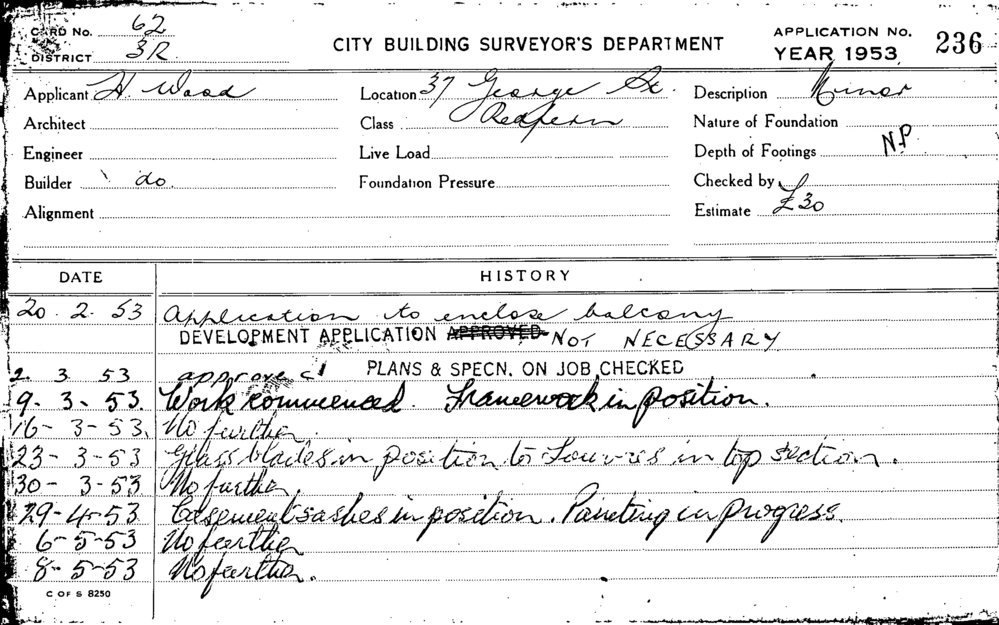 CARD No. 62
DISTRICT 3R
CITY BUILDING SURVEYOR'S DEPARTMENT
APPLICATION No.
YEAR 1953
236
Applicant H. Wood
Location 37 George St.
Description Minor
Architect
Class Redfern
Nature of Foundation
Engineer
Live Load
Depth of Footings N.P
Builder do
Foundation Pressure
Checked by
Alignment
Estimate £30
DATE HISTORY
20. 2. 53 Application to enclose balcony
DEVELOPMENT APPLICATION APPROVED NOT NECESSARY
2. 3. 53 approved PLANS & SPECN. ON JOB CHECKED
9- 3- 53. Work commenced. Framework in position.
16- 3-53. No further.
23- 3-53 Glass blades in position to Louvres in top section.
30- 3-53 No further
29-4-53 Casement sashes in position. Painting in progress.
6-5-53 No further
8-5-53 No further.
C OF S 8250